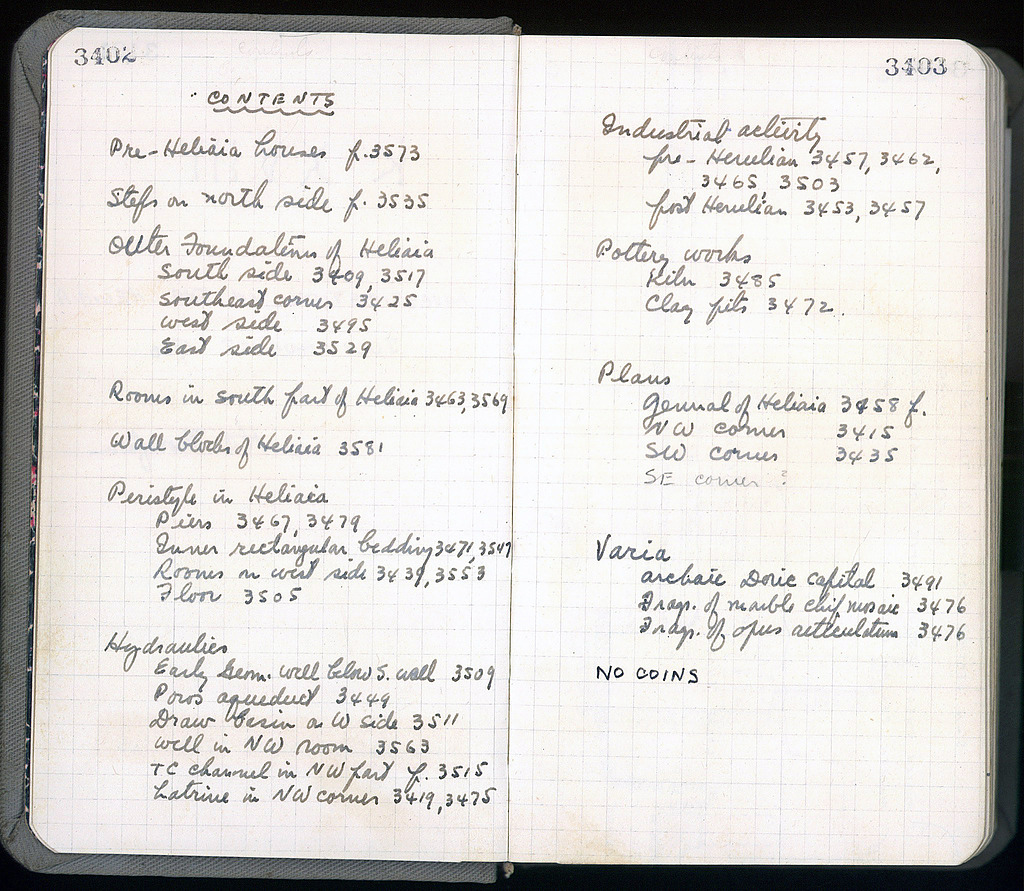 3402
CONTENTS
Pre-Heliaia houses p. 3573
Steps on north side p. 3535
Outer Foundations of Heliaia
South side 3409, 3517
Southeast corner 3425
West side 3495
East side 3529
Rooms in south part of Heliaia 3463, 3569
Wall blocks of Heliaia 3581
Peristyle in Heliaia
Piers 3467, 3479
Inner rectangular bedding 3471, 3547
Rooms on west side 3439, 3553
Floor 3505
Hydraulics
Early Geom. well below S. wall 3509
Poros aqueduct 3449
Draw basin on W side 3511
Well in NW room 3563
TC channel in NW part p. 3515
Latrine in NW corner 3419, 3475
3403
Industrial activity
pre-Herulian 3457, 3462,
3465, 3503
post Herulian 3453, 3457
Pottery works
Kiln 3485
Clay pits 3472.
Plans
General of Heliaia 3458 f.
NW corner 3415
SW corner 3435
SE corner ?
Varia
archaic Doric capital 3491
Frag. of marble chip mosaic 3476
Frag. of opus reticulatum 3476
NO COINS